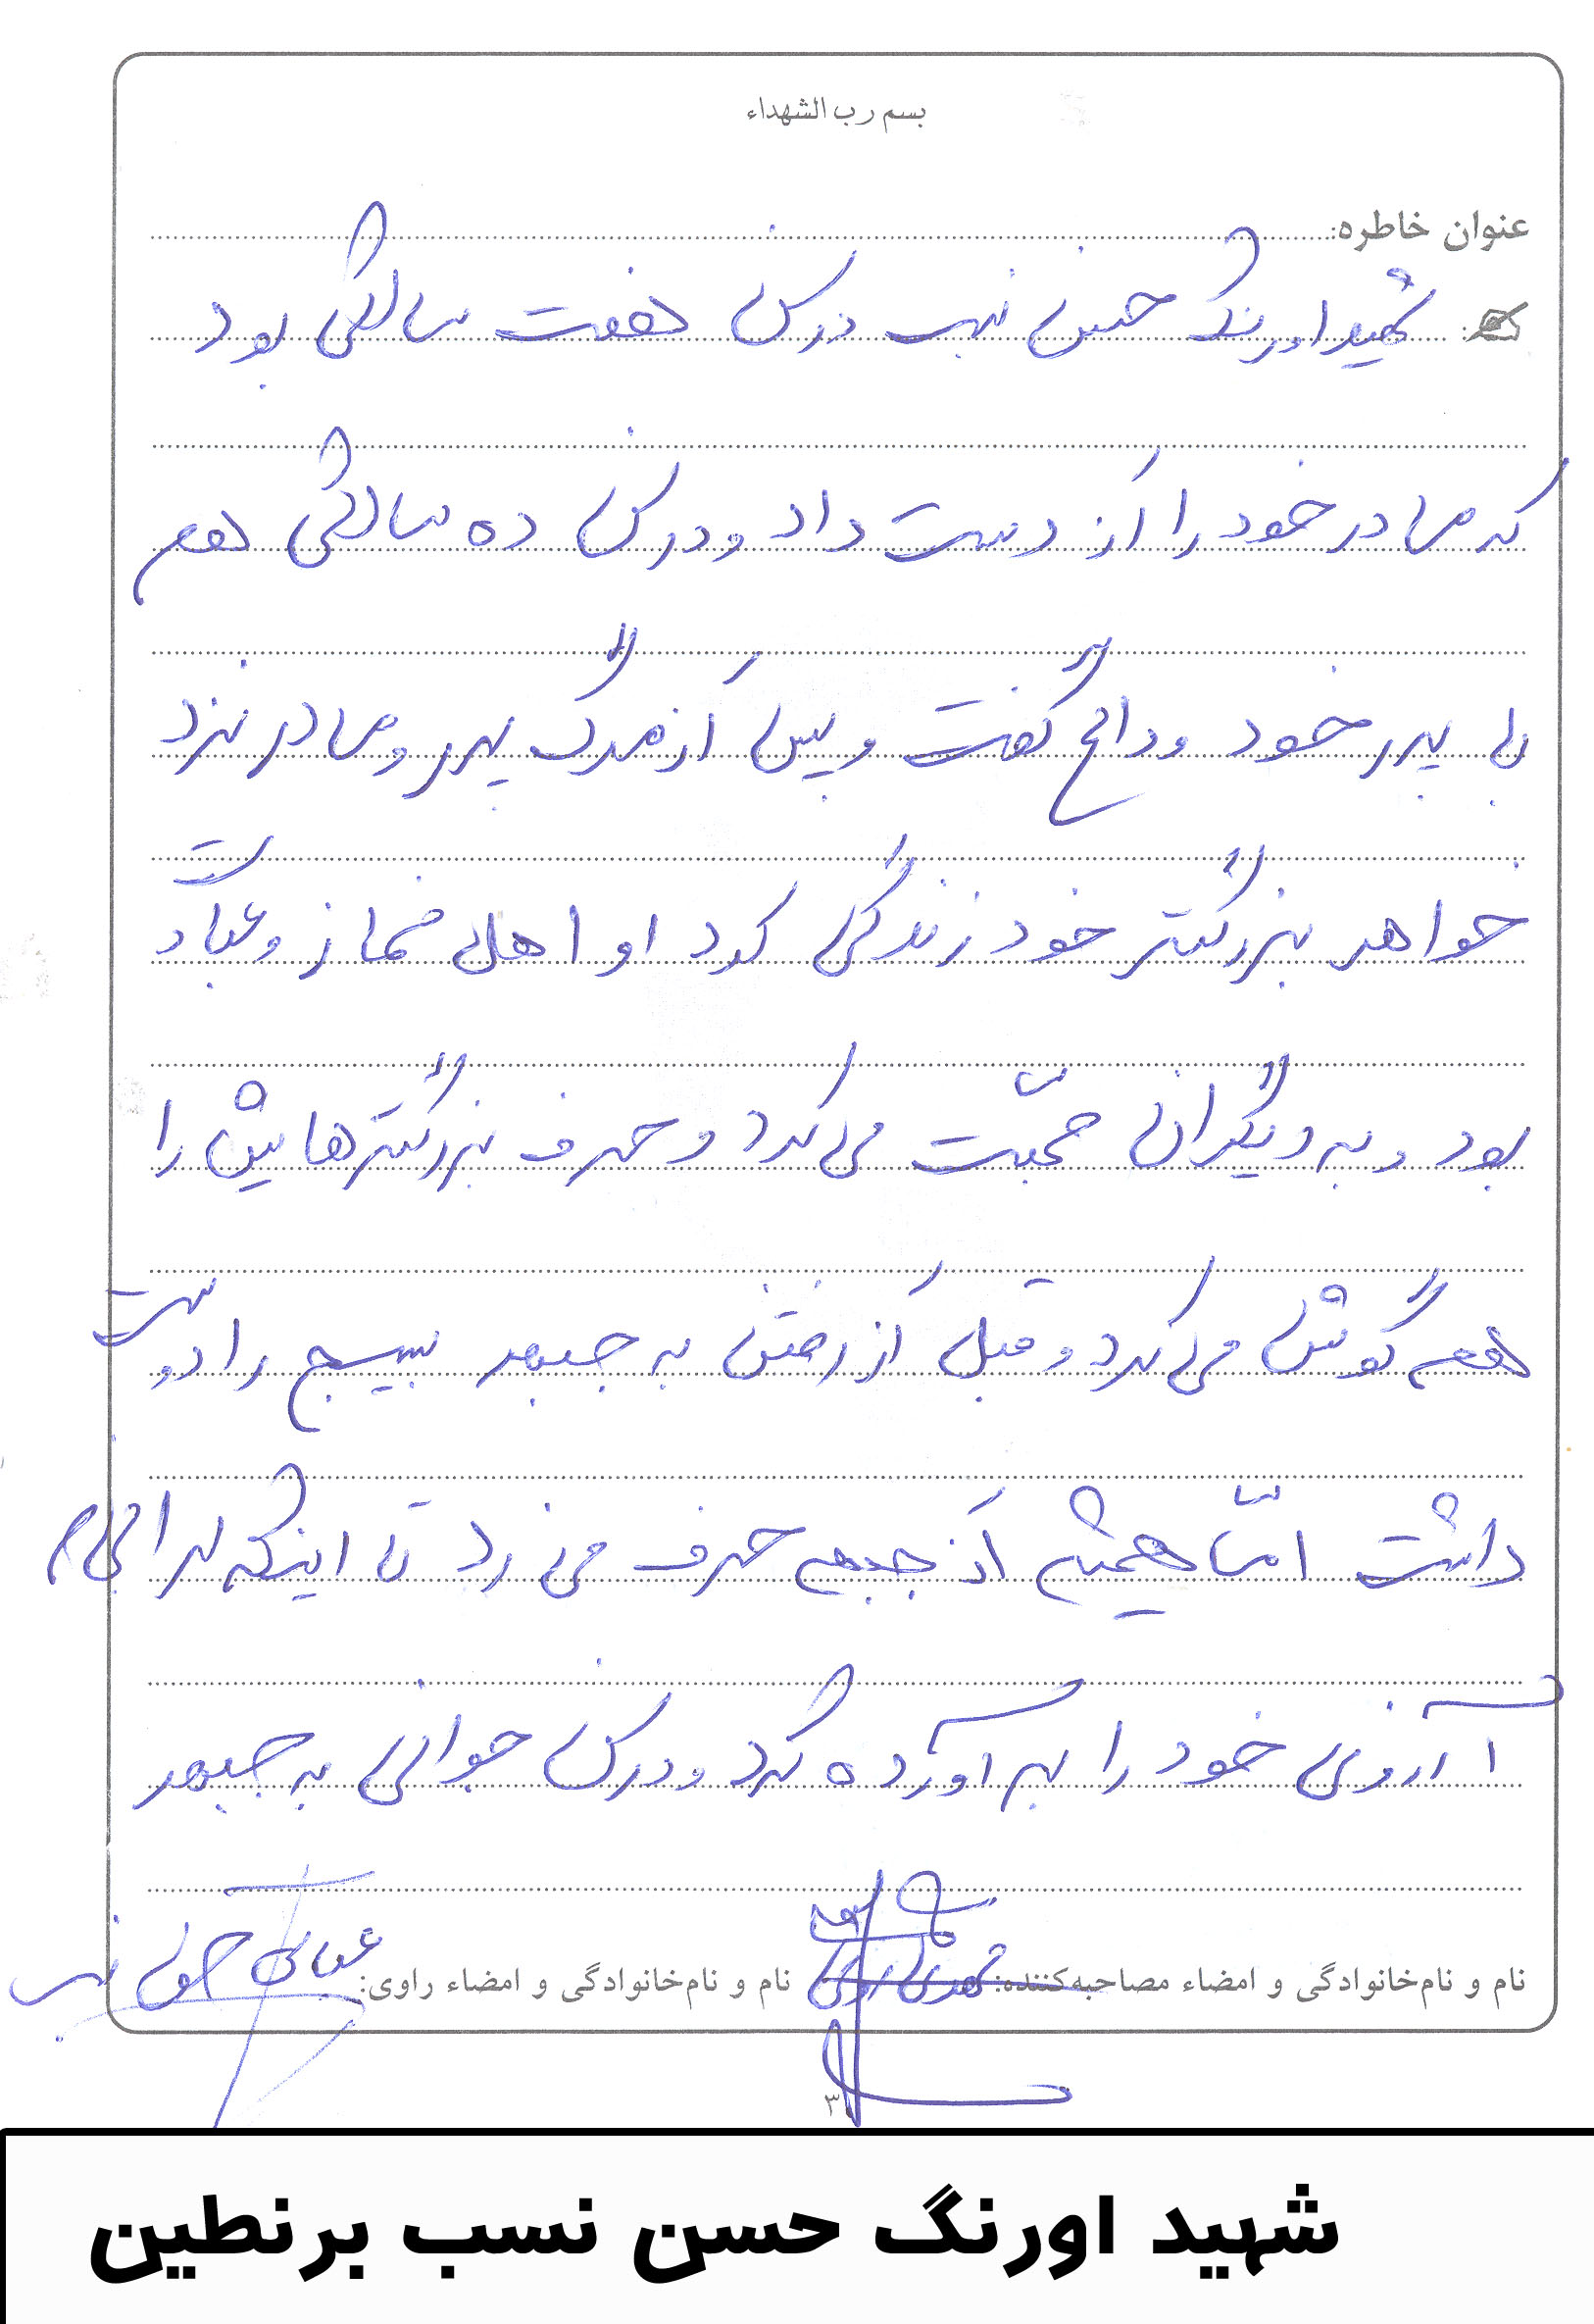 بسم رب الشهداء
عنوان خاطره:
شهید اورنگ حسن نسب در سن هفت سالگی بود
که مادر خود را از دست داد و در سن ده سالگی هم
با پدر خود وداع گفت و پس از مرگ پدر و مادر نزد
خواهر بزرگتر خود زندگی کرد او اهل نماز و عبادت
بود و به دیگران محبّت می‌کرد و حرف بزرگترهایش را
هم گوش می‌کرد و قبل از رفتن به جبهه بسیج را دوست
داشت امّا همیشه از جبهه حرف می زد تا اینکه سرانجام
آرزوی خود را برآورده کرد و در سن جوانی به جبهه
نام و نام‌خانوادگی و امضاء مصاحبه‌کننده: نام و نام‌خانوادگی و امضاء راوی: عباس حسن نسب
۳
شهید اورنگ حسن نسب برنطین